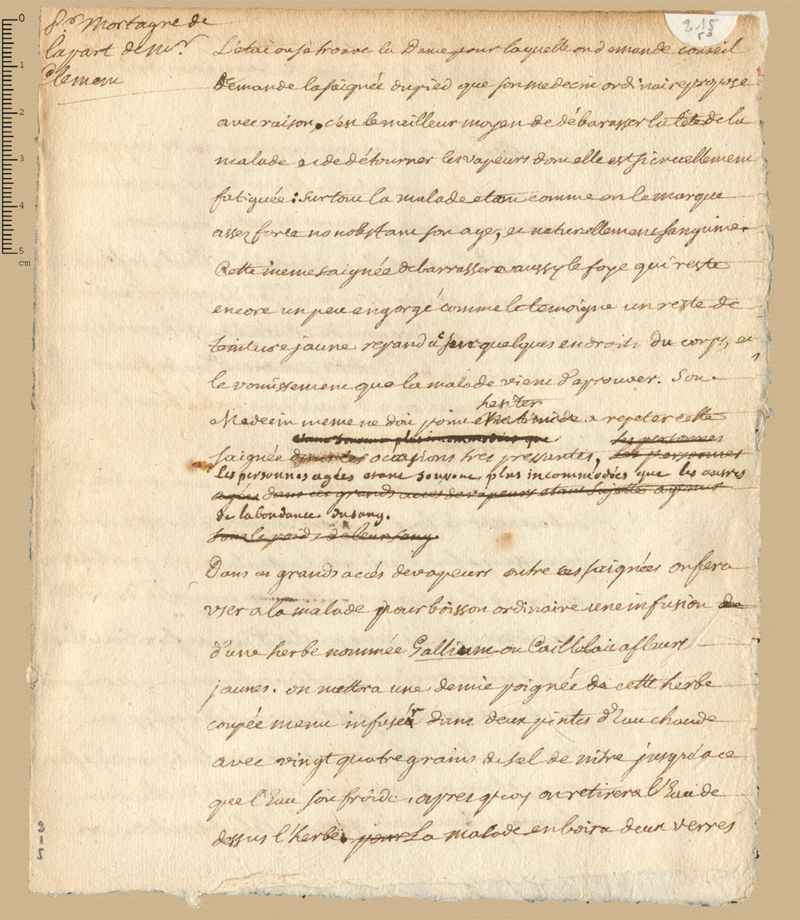 215
5º
Mortagne de
la part de Mr
Clement
L'etat ou se trouve la Dame pour laquelle on demande conseil
Demande la saignée du pied que son medecin ordinaire propose
avec raison, c'est le meilleur moyen de débarasser la tete de la
malade et de détourner les vapeurs dont elle est si cruellement
fatiguée : surtout la malade etant comme on le marque
assez forte nonobstant son age, et naturellement sanguine.
Cette meme saignée debarrassera aussy le foye qui reste
encore un peu engorgé comme le temoigne un reste de
teinture jaune repandue sur quelques endroits du corps, et
le vomissement que la malade vient d'eprouver. Son
hesiter
Medecin meme ne doit point a repeter cette
etant souvent plus incommodées que les personnes
saignée occasions tres pressantes, les personnes
les personnes agées etant souvent plus incommodées que les autres
agées dans ces grands accés de vapeurs etant sujettes a gemir
de labondance du sang.
sous le poids de leur sang
Dans ces grands accés de vapeurs outre ces saignées on fera
vser a la malade pour boisson ordinaire une infusion de
d'une herbe nommée Gallium ou Caillelait a fleurs
jaunes. on mettra une demie poignée de cette herbe
coupée menu infuser dans deux pintes d'Eau chaude
avec vingt quatre grains de sel de nitre jusqu'a ce
que l'Eau soit froide, apres quoy on retirera l'Eau de
dessus l'herbe. pour La malade en boira deux verres
215
0
1
2
3
4
5
cm